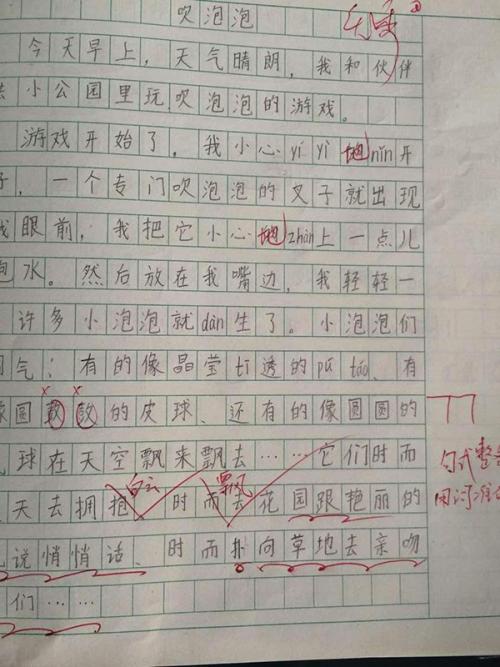 吹泡泡
今天早上，天气晴朗，我和伙伴
小公园里玩吹泡泡的游戏。
游戏开始了，我小心yì yì地nǐn开
子，一个专门吹泡泡的叉子就出现
我眼前，我把它小心地zhàn上一点儿
泡水。然后放在我嘴边，我轻轻一
许多小泡泡就dàn生了。小泡泡们
气：有的像晶莹tī透的pú táo、有
像圆的皮球、还有的像圆圆的
球在天空飘来飘去……它们时而
白云 飘
天去拥抱 时而去花园跟艳丽的
说悄悄话、时而扑向草地去亲吻
们……
句式整